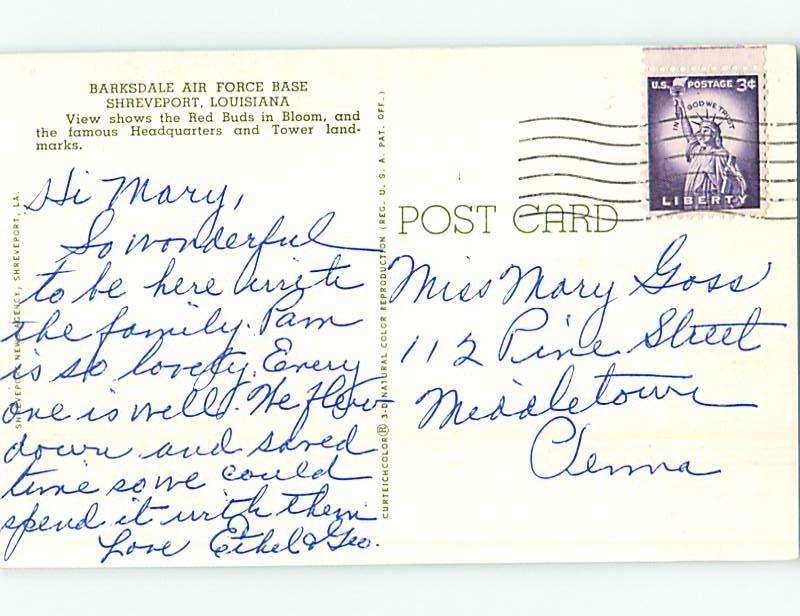 BARKSDALE AIR FORCE BASE
SHREVEPORT, LOUISIANA
View shows the Red Buds in Bloom, and
the famous Headquarters and Tower land-
marks.
Hi Mary,
So wonderful
to be here with
the family. Pam
is so lovely. Every
one is well. We flew
down and saved
time so we could
spend it with them
Love Ethel & Geo.
SHREVEPORT NEWS AGENCY, SHREVEPORT, LA.
CURTEICHCOLOR® 3-D NATURAL COLOR REPRODUCTION (REG. U. S. A. PAT. OFF.)
POST CARD
U.S. POSTAGE 3¢
IN GOD WE TRUST
LIBERTY
Miss Mary Goss
112 Pine Street
Middletown
Penna